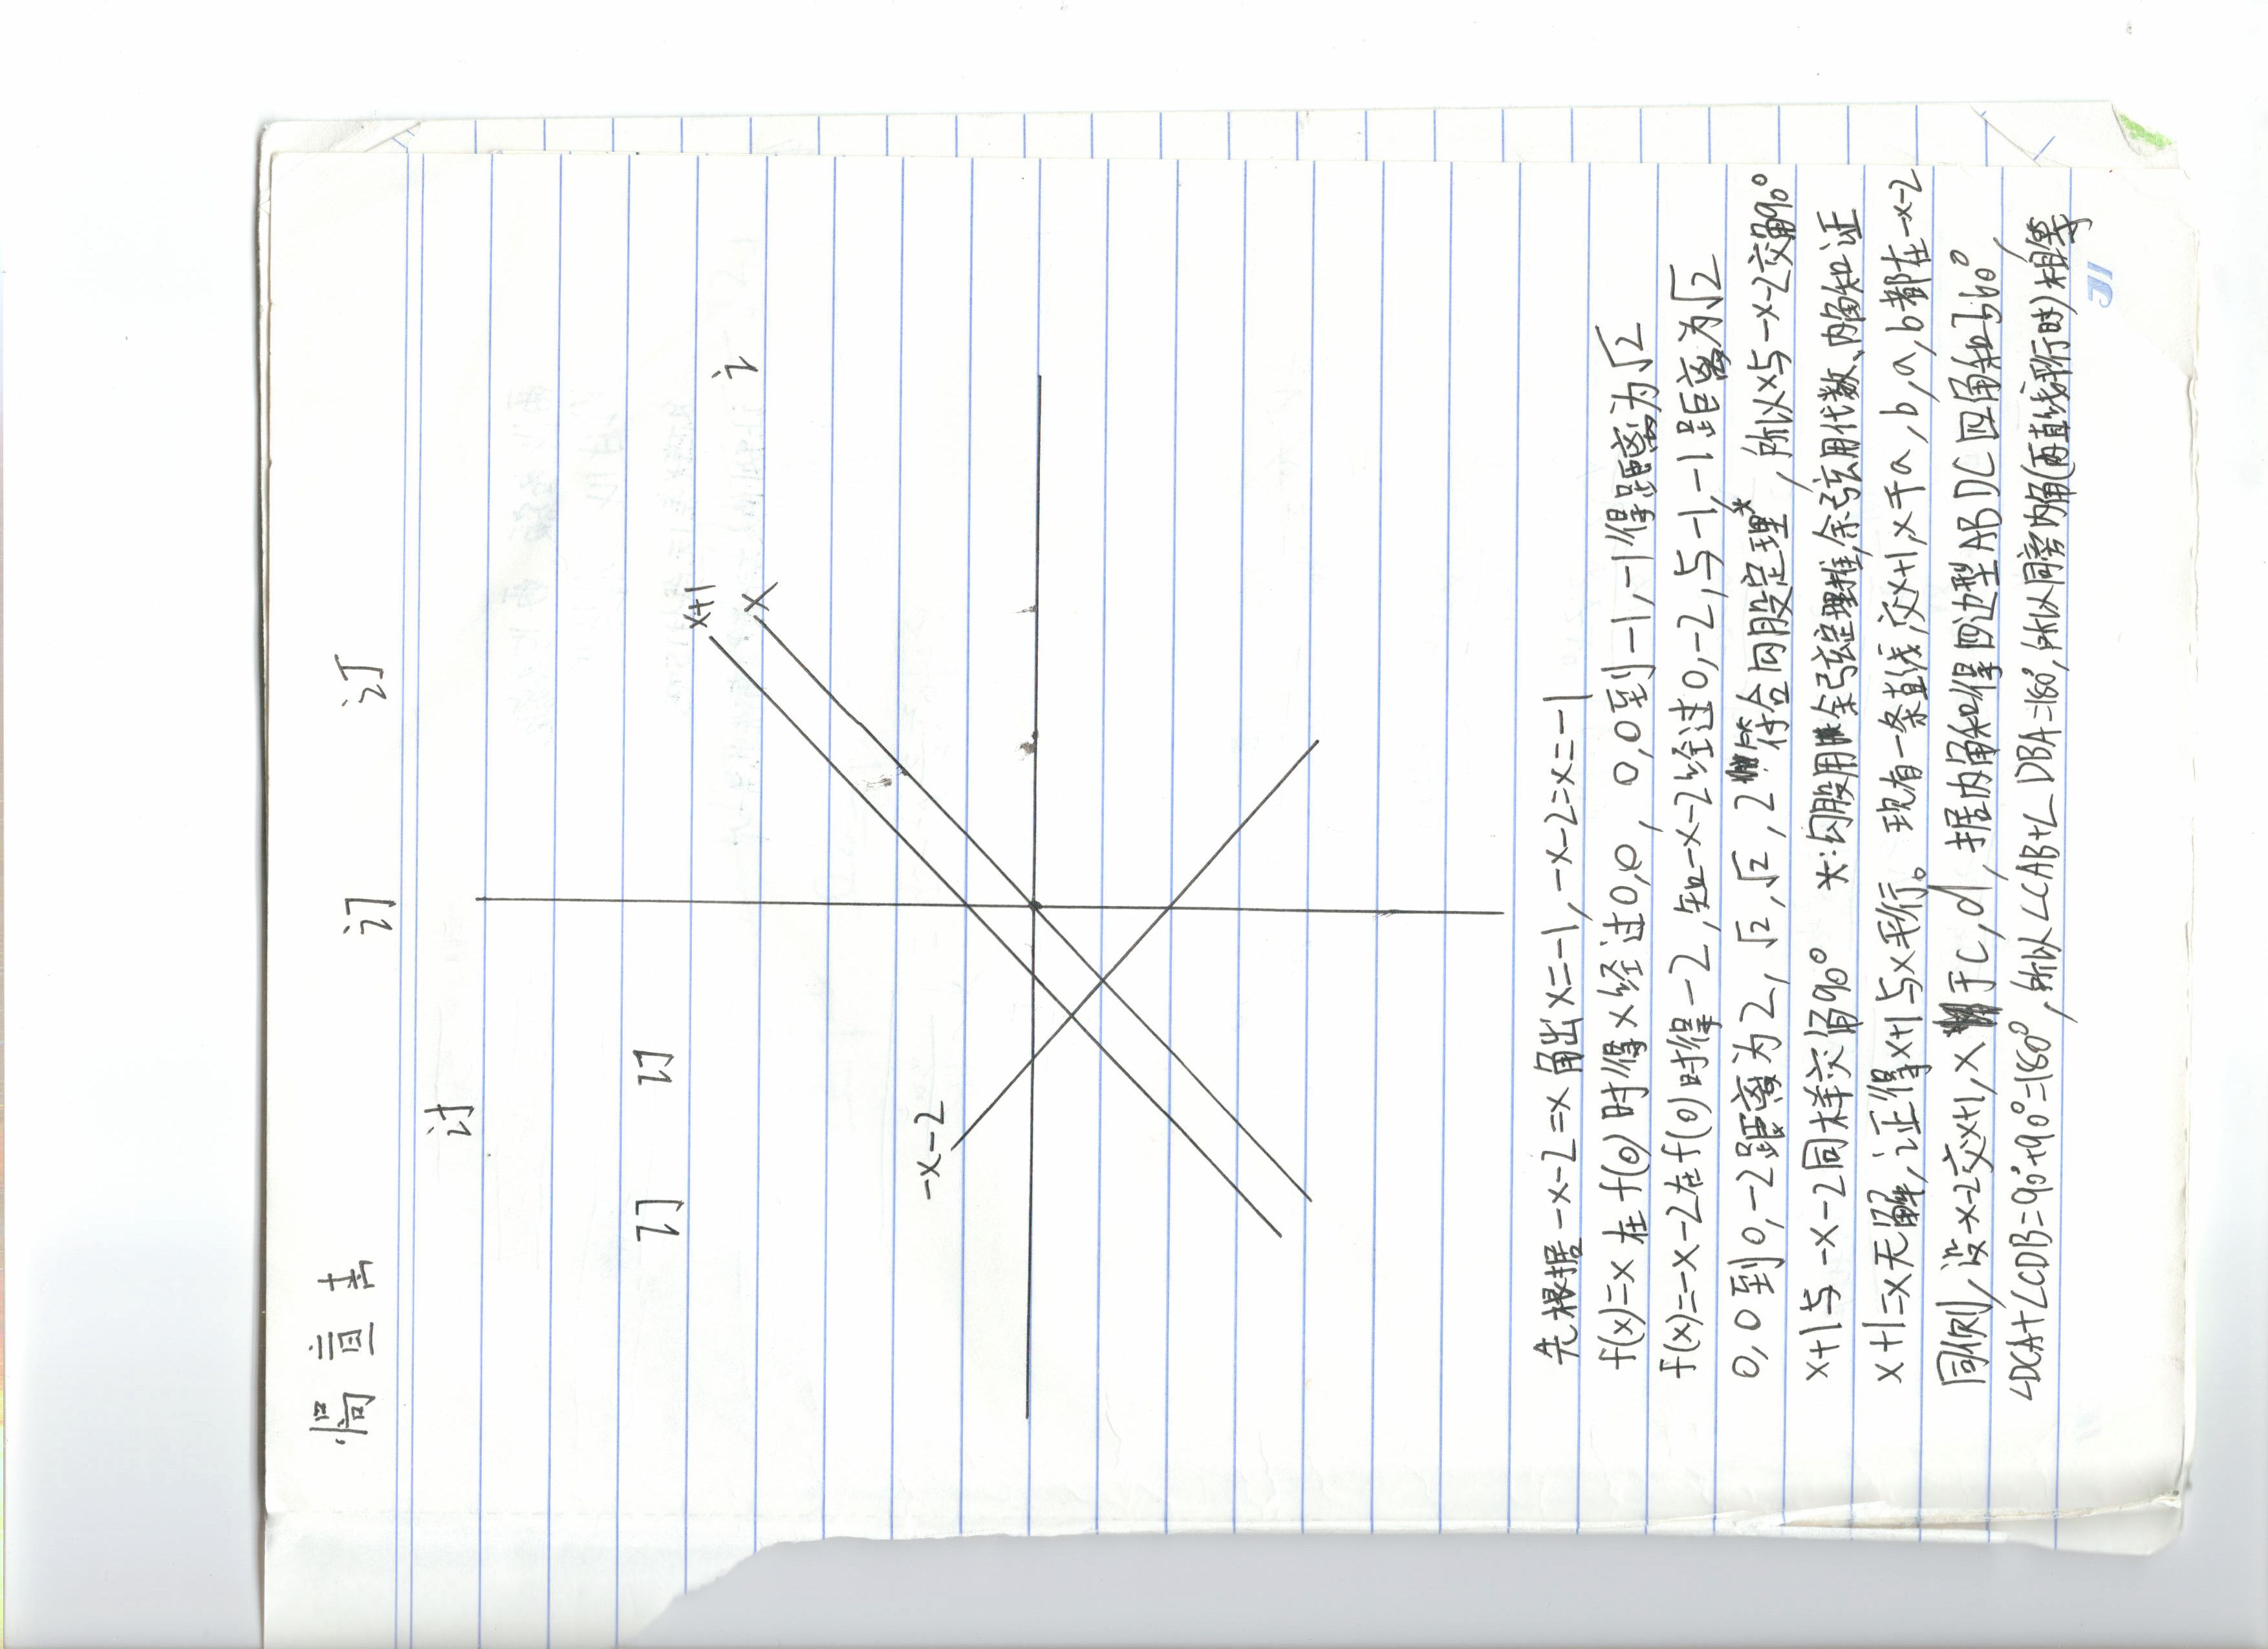 惝 直 髙
讨 订 订
订 订
讠
x+1
x
-x-2
先根据-x-2=x 角出x=-1,-x-2=x=-1
f(x)=x 在 f(0) 时得x经过0,0 , 0,0到-1,-1得距离为√2
f(x)=-x-2在f(0)时得-2,知-x-2经过0,-2,与-1,-1距离为√2
0,0到0,-2距离为2,√2,√2,2符合勾股定理*,所以x与-x-2交角90°
x+1与-x-2同样交角90° *:勾股用余弦定理推,余弦用代数、内角和证
x+1=x无解,证得x+1与x平行。 现有一条直线,交x+1,x于a,b,a,b都在-x-2
同侧,设-x-2交x+1,x于c,d,据内角和得四边型ABDC四角和360°
∠DCA+∠CDB=90°+90°=180°,所以∠CAB+∠DBA=180°,所以同旁内角(两直线平行时)相等